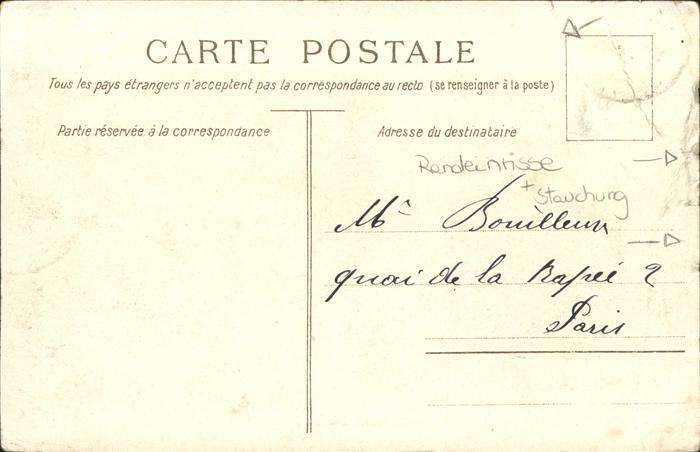 CARTE POSTALE
Tous les pays étrangers n'acceptent pas la correspondance au recto (se renseigner à la poste)
Partie réservée à la correspondance
Adresse du destinataire
Randeinrisse
+ Stauchung
Mr Bouilleur
quai de la Rapée 2
Paris